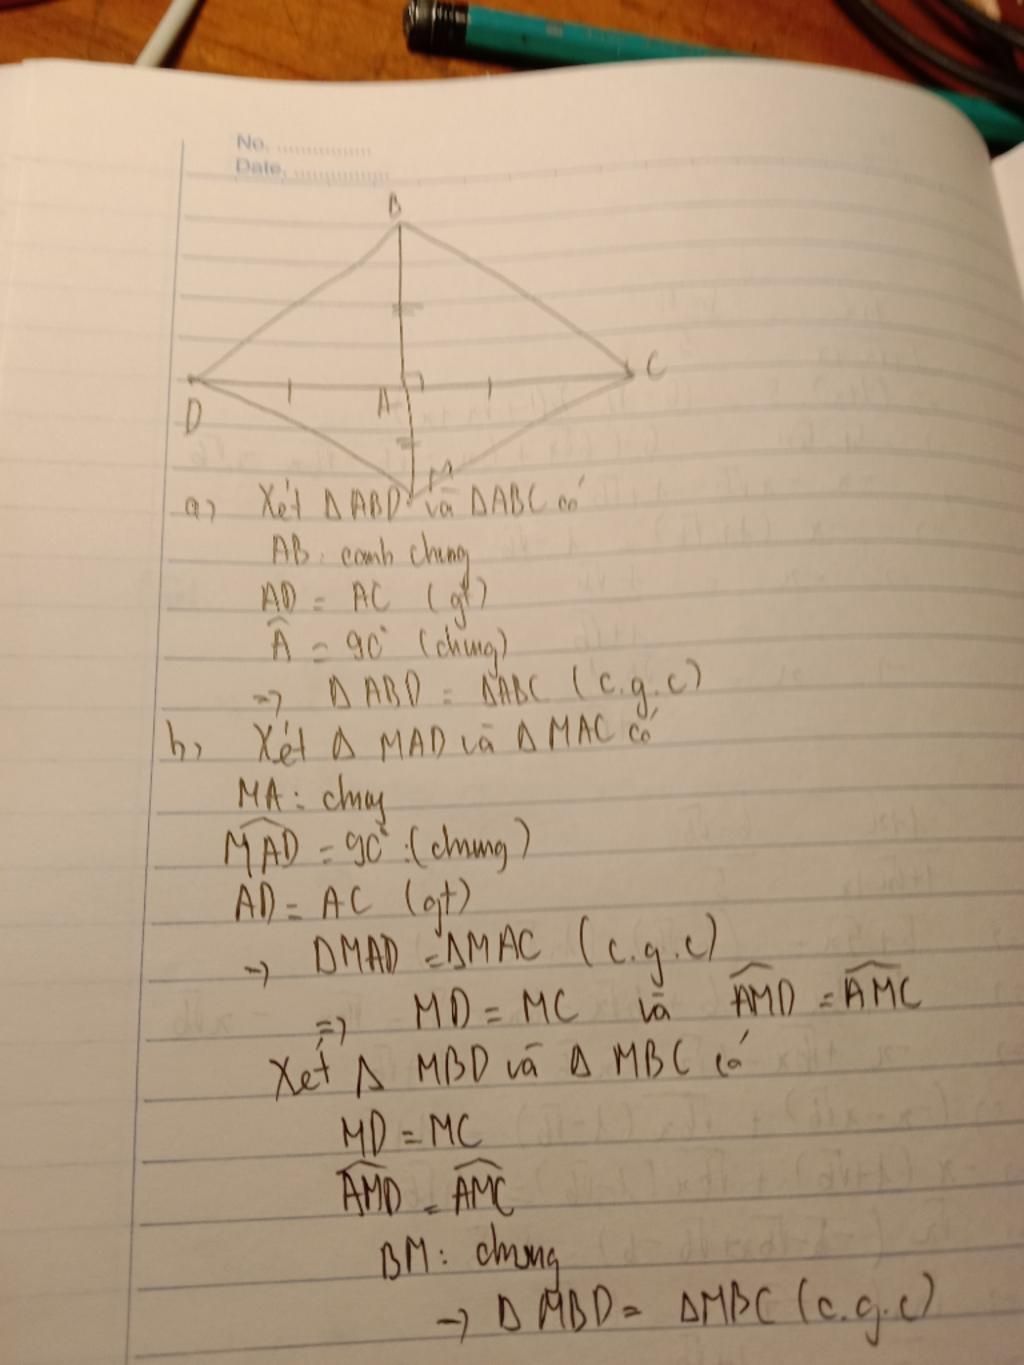 No. ................
Date. ................
B
D
A
C
M
a, Xét Δ ABD và Δ ABC có
AB : cạnh chung
AD = AC (gt)
Â = 90° (chung)
=> Δ ABD = Δ ABC (c.g.c)
b, Xét Δ MAD và Δ MAC có
MA : chung
∠MAD = 90° : (chung)
AD = AC (gt)
=> ΔMAD = ΔMAC (c.g.c)
=> MD = MC và ∠AMD = ∠AMC
Xét Δ MBD và Δ MBC có
MD = MC
∠AMD = ∠AMC
BM : chung
-> Δ MBD = ΔMBC (c.g.c)